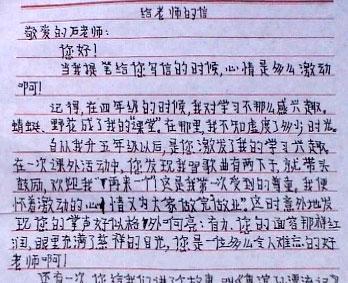 给老师的信
敬爱的石老师:
您好!
当我提笔给您写信的时候,心情是多么激动
啊!
记得,在四年级的时候,我对学习不那么感兴趣。
蜻蜓、野花成了我的“课堂”。在那里,我不知虚度了多少时光。
自从我升五年级以后,是您激发了我的学习兴趣。
在一次课外活动中,您发现我唱歌曲有两下子,就带头
鼓励,欢迎我“再来一个”这是我第一次受到的尊重,我便
怀着激动的心情又为大家做完做业”这时意外地发
现您的掌声好似格外响亮:有力,您的面容那样红
润,眼里充满了慈祥的目光,您是一位多么令人难忘的好
老师啊!
还有一次,您给我们讲了个故事,叫